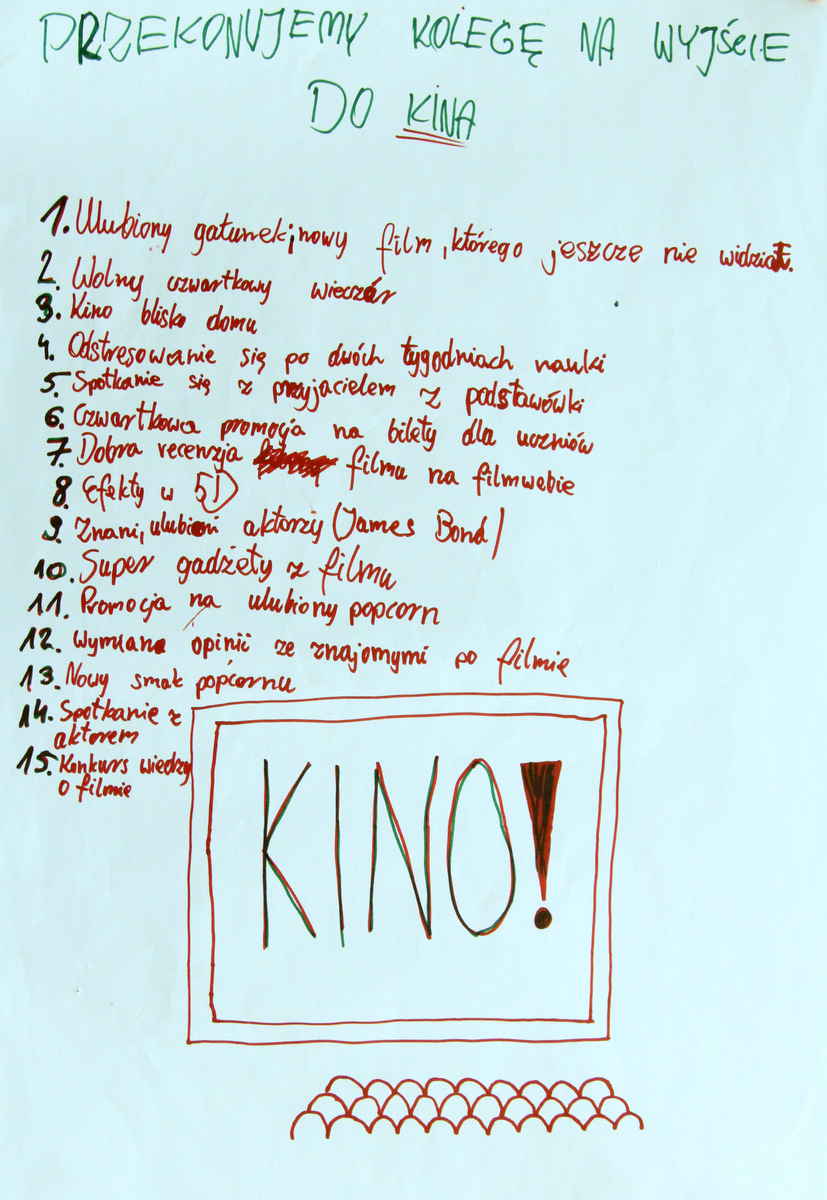 PRZEKONUJEMY KOLEGĘ NA WYJŚCIE
DO KINA
1. Ulubiony gatunek; nowy film, którego jeszcze nie widział.
2. Wolny czwartkowy wieczór
3. Kino blisko domu
4. Odstresowanie się po dwóch tygodniach nauki
5. Spotkanie się z przyjacielem z podstawówki
6. Czwartkowa promocja na bilety dla uczniów
7. Dobra recenzja filmu na filmwebie
8. Efekty w 5D
9. Znani, ulubieni aktorzy (James Bond)
10. Super gadżety z filmu
11. Promocja na ulubiony popcorn
12. Wymiana opinii ze znajomymi po filmie
13. Nowy smak popcornu
14. Spotkanie z
aktorem
15. Konkurs wiedzy
o filmie
KINO!